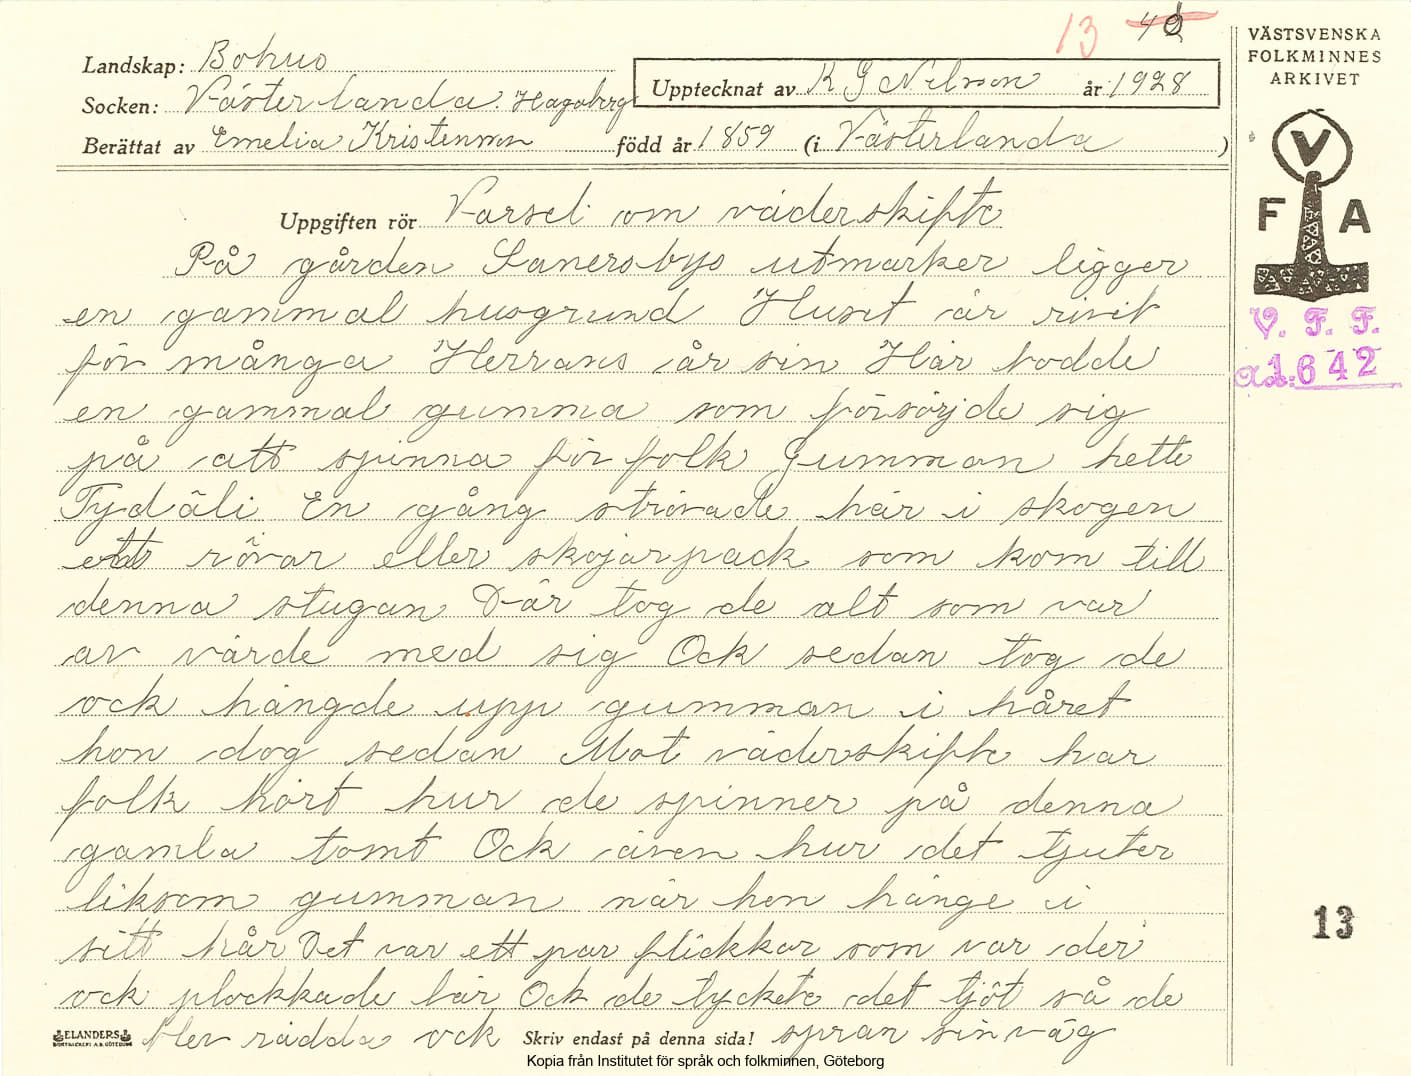 13 40
Landskap: Bohus
Socken: Västerlanda. Hagaberg
Berättat av Emelia Kristensson född år 1859 (i Västerlanda )
Upptecknat av K G Nilsson år 1928
VÄSTSVENSKA
FOLKMINNES
ARKIVET
V
F A
V. F. F.
1642
Uppgiften rör Varsel om väderskifte
På gården Sanersbys utmarker ligger
en gammal husgrund Huset är rivit
för många Herrans år sin Här bodde
en gammal gumma som försörjde sig
på att spinna för folk Gumman hette
Tydäli En gång strövade här i skogen
ett rövar eller skojarpack som kom till
denna stugan Där tog de alt som var
av värde med sig Ock sedan tog de
ock hängde upp gumman i håret
hon dog sedan Mot väderskifte har
folk hört hur de spinner på denna
gamla tomt Ock även hur det tjuter
liksom gumman när hon hänge i
sitt hår Det var ett par flickkor som var der
ock plockkade bär Ock de tyckete det tjöt så de
blev rädda ock spran sin väg
13
ELANDERS
Skriv endast på denna sida!
Kopia från Institutet för språk och folkminnen, Göteborg